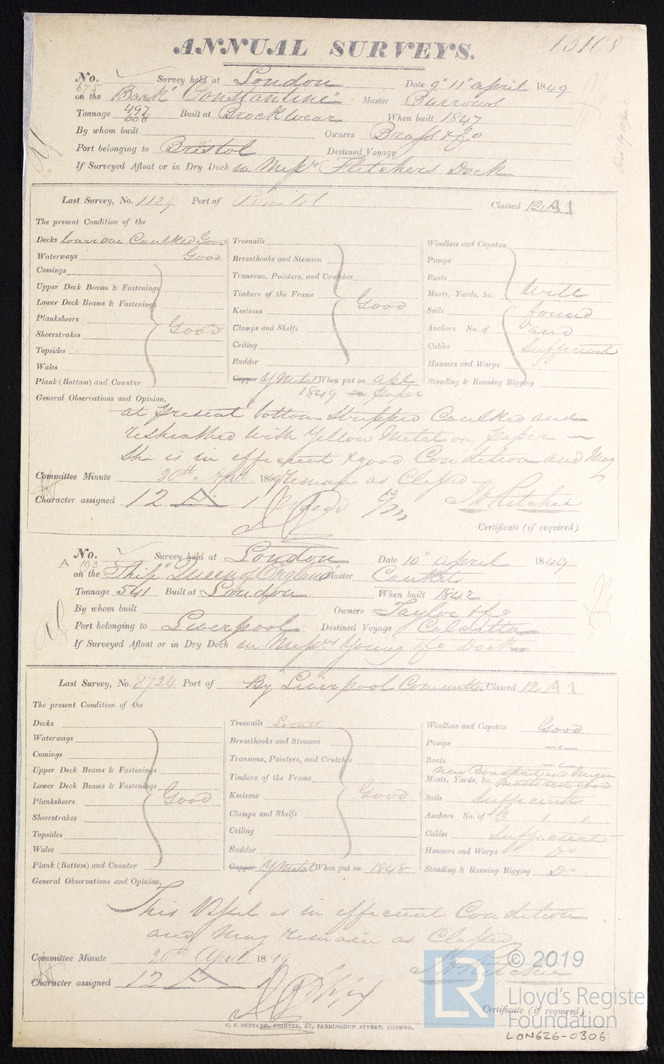 15108
ANNUAL SURVEYS.
No. 675 Survey held at London Date 9" 11" april 1849
on the Bark "Constantine" Master Barrows
Tonnage 497 608 Built at Brockwear When built 1847
By whom built Owners Brass & Co
Port belonging to Bristol Destined Voyage
If Surveyed Afloat or in Dry Dock in Messrs Fletchers Dock
Last Survey, No. 1129 Port of Bristol Classed 12 A1
The present Condition of the
Decks Caulked Good
Waterways Good
Comings
Upper Deck Beams & Fastenings
Lower Deck Beams & Fastenings
Planksheers Good
Sheerstrakes
Topsides
Wales
Plank (Bottom) and Counter
Treenails
Breasthooks and Stemson
Transoms, Pointers, and Crutches
Timbers of the Frame Good
Keelsons
Clamps and Shelfs
Ceiling
Rudder
Copper Y Metal When put on apl
1849 on paper
Windlass and Capstan
Pumps
Boats
Masts, Yards, &c. Well
Sails found
Anchors No. of and
Cables sufficient
Hawsers and Warps
Standing & Running Rigging
General Observations and Opinion,
at present bottom Stripped Caulked and
resheathed with Yellow Metal on paper
She is in efficient & good Condition and May
remain as Classed
Committee Minute 20th Apr 1849
Character assigned 12 A 1
Certificate (if required)
No. A 193 Survey held at London Date 10" april 1849
on the Ship "Queen of England" Master
Tonnage 541 Built at London When built 1842
By whom built Owners Taylor & Co
Port belonging to Liverpool Destined Voyage Calcutta
If Surveyed Afloat or in Dry Dock in Messrs Young & Co Dock
Last Survey, No. 8724 Port of By Liverpool Committee Classed 12 A1
The present Condition of the
Decks
Waterways
Comings
Upper Deck Beams & Fastenings
Lower Deck Beams & Fastenings
Planksheers Good
Sheerstrakes
Topsides
Wales
Plank (Bottom) and Counter
Treenails Locust
Breasthooks and Stemson
Transoms, Pointers, and Crutches
Timbers of the Frame
Keelsons Good
Clamps and Shelfs
Ceiling
Rudder
Copper Y Metal When put on 1848
Windlass and Capstan Good
Pumps
Boats
new Bowsprit and
Masts, Yards, &c.
Sails sufficient
Anchors No. of
Cables sufficient
Hawsers and Warps Do
Standing & Running Rigging Do
General Observations and Opinion,
This Vessel is in efficient Condition
and may remain as Classed
Committee Minute 20th April 1849
Character assigned 12 A 1
Certificate (if required)
C. F. SEYFANG, PRINTER, 57, FARRINGDON STREET, LONDON.
LR © 2019
Lloyd's Register
Foundation
LON626-0306